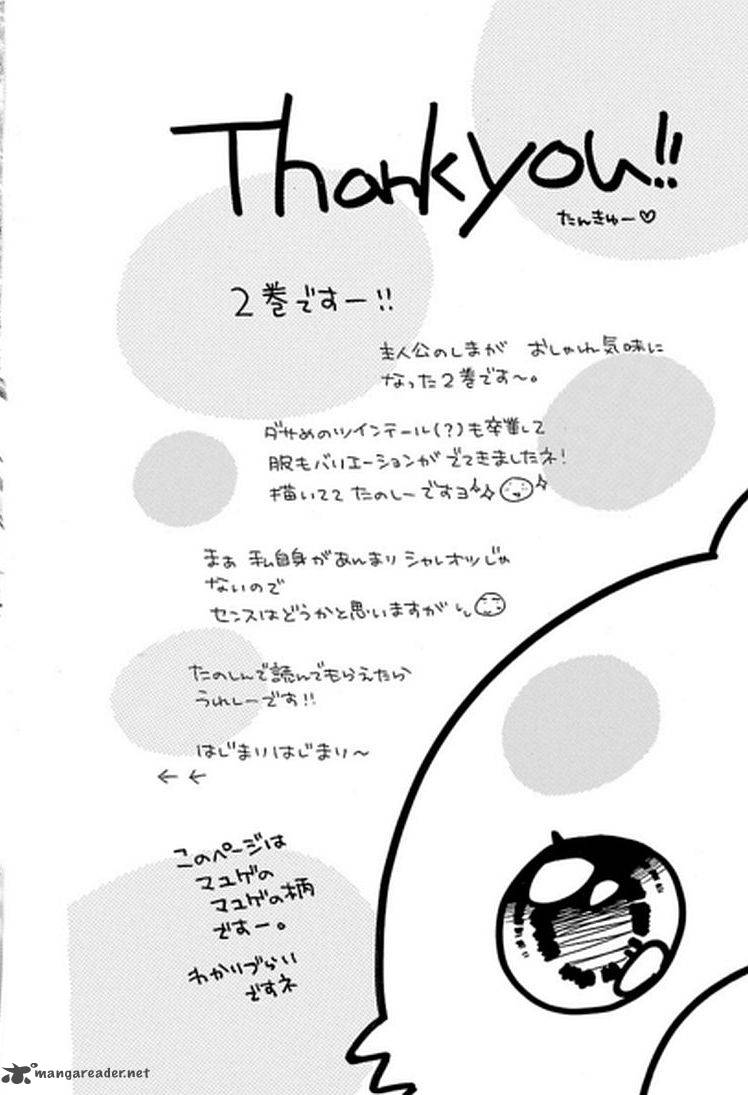 Thank you!!
たんきゅー♡
2巻ですー!!
主人公のしまが おしゃれ気味に
なった2巻です〜。
ダサめのツインテール(?)も卒業して
服もバリエーションがでてきましたネ!
描いてて たのしーですヨ
まぁ 私自身があんまり シャレオツじゃ
ないので
センスはどうかと思いますが
たのしんで読んでもらえたら
うれしーです!!
はじまりはじまり〜
← ←
このページは
マユゲの
マユゲの柄
ですー。
わかりづらい
ですネ
mangareader.net